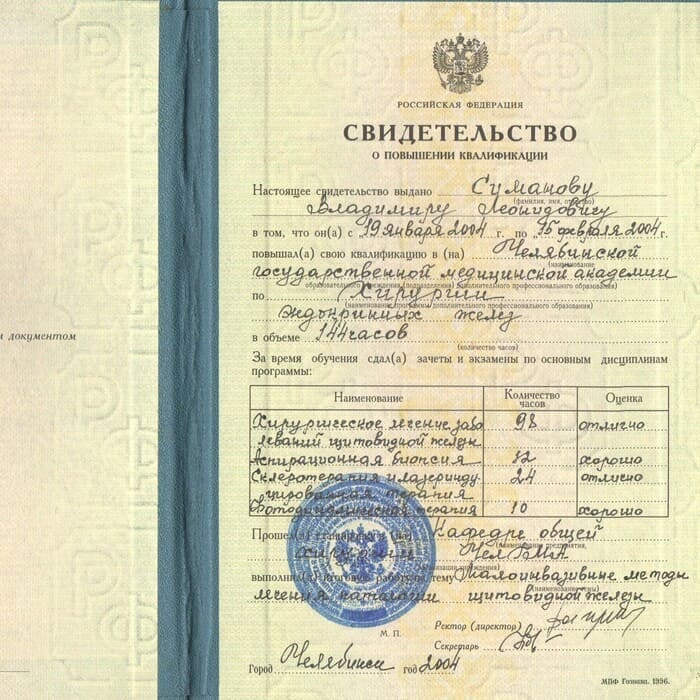 м документом
РОССИЙСКАЯ ФЕДЕРАЦИЯ
СВИДЕТЕЛЬСТВО
О ПОВЫШЕНИИ КВАЛИФИКАЦИИ
Настоящее свидетельство выдано Симанову
(фамилия, имя, отчество)
Владимиру Леонидовичу
в том, что он(а) с 19 января 2004 г. по 15 февраля 2004 г.
повышал(а) свою квалификацию в (на) Челябинской
(наименование
государственной медицинской академии
образовательного учреждения (подразделения) дополнительного профессионального образования)
по Хирургии
(наименование программы дополнительного профессионального образования)
эндокринных желез
в объеме 144 часов
(количество часов)
За время обучения сдал(а) зачеты и экзамены по основным дисциплинам
программы:
Наименование Количество часов Оценка
Хирургическое лечение забо 98 отлично
леваний щитовидной железы
Аспирационная биопсия 12 хорошо
Склеротерапия и лазеринду 24 отлично
цированная терапия
Фотодинамическая терапия 10 хорошо
Прошел(а) стажировку в (на) Кафедре общей
(наименование предприятия,
хирургии ЧелГМА
организации, учреждения)
выполнил(а) итоговую работу на тему Малоинвазивные методы
(наименование темы)
лечения патологии щитовидной железы
Ректор (директор)
М. П.
Секретарь
Город Челябинск год 2004
МПФ Гознака. 1996.